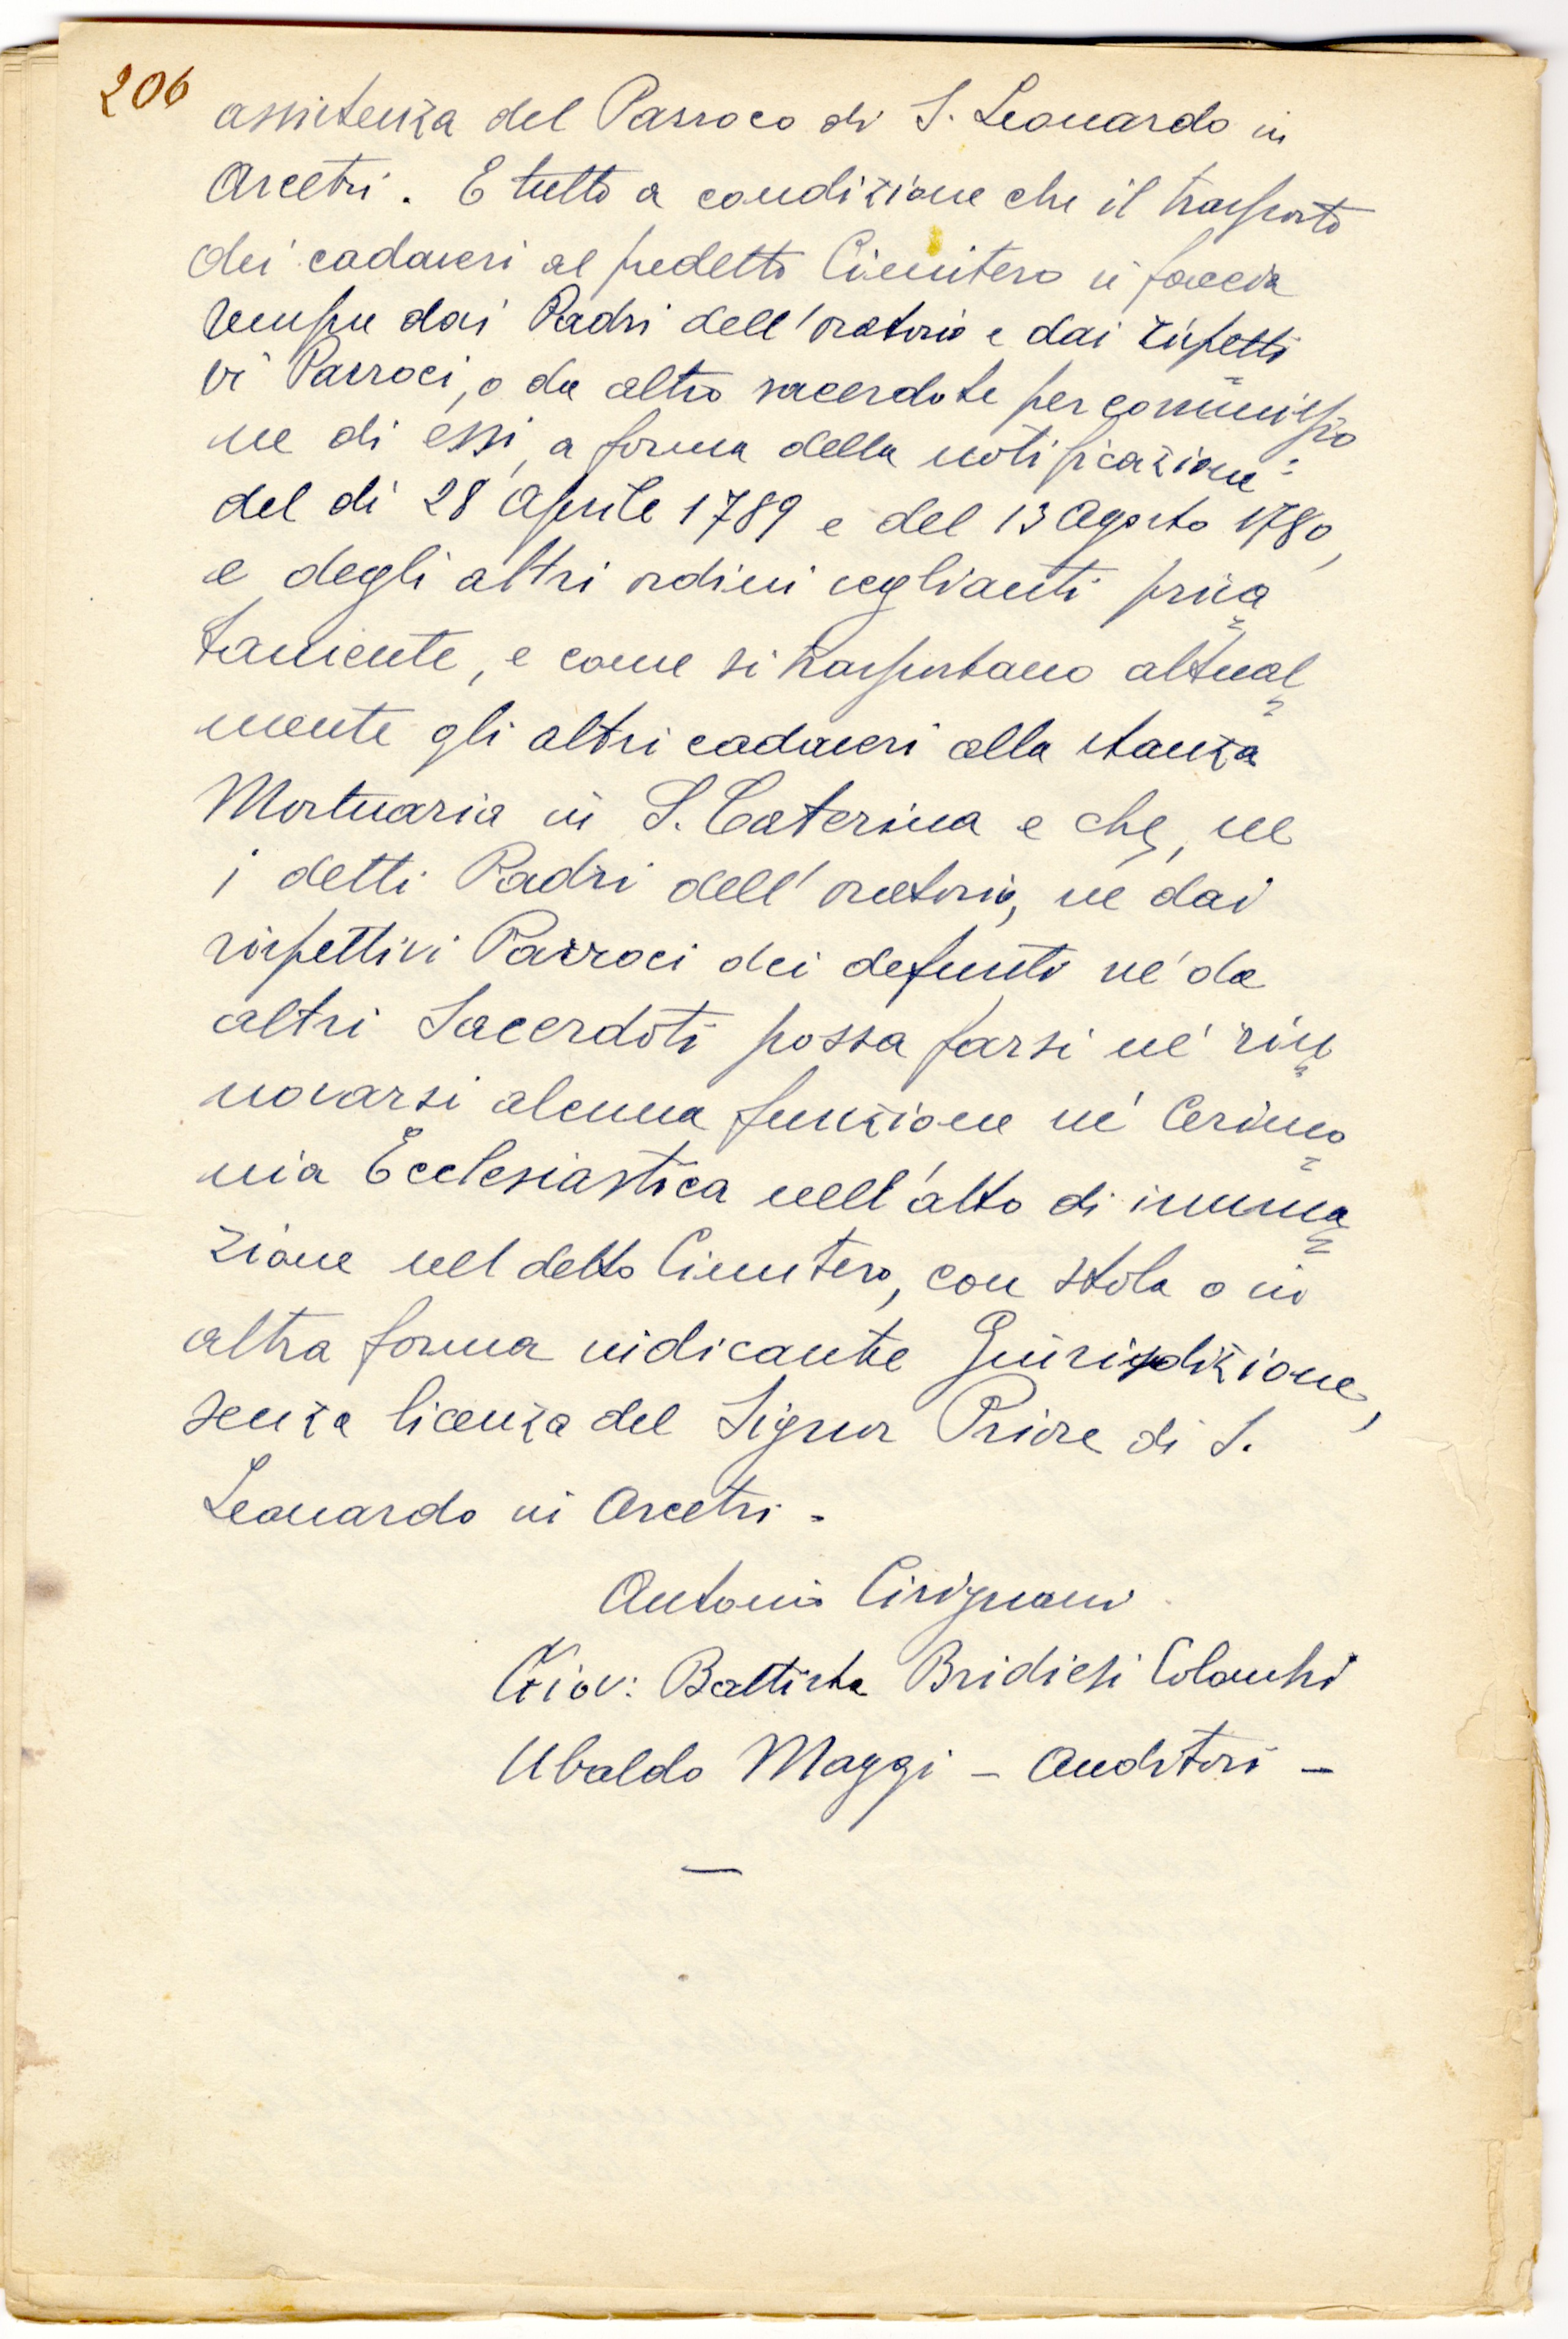 206
assistenza del Parroco di S. Leonardo in
Arcetri. E tutto a condizione che il trasporto
dei cadaveri al predetto Cimitero si faccia
sempre dai Padri dell'oratorio e dai rispetti
vi Parroci, o da altro sacerdote per commissio
ne di essi, a forma della notificazione
del di 28 Aprile 1789 e del 13 Agosto 1780,
e degli altri ordini veglianti priva
tamente, e come si trasportano attual
mente gli altri cadaveri alla stanza
Mortuaria in S. Caterina e che, ne
i detti Padri dell'oratorio, ne dai
rispettivi Parroci dei defunti ne' da
altri Sacerdoti possa farsi ne' rin
novarsi alcuna funzione ne' Cerimo
nia Ecclesiastica nell'atto di inuma
zione nel detto Cimitero, con stola o in
altra forma indicante Giurisdizione,
senza licenza del Signor Priore di S.
Leonardo in Arcetri.
Antonio Cirignani
Giov: Battista Bridiesi Colombi
Ubaldo Maggi - Auditori -